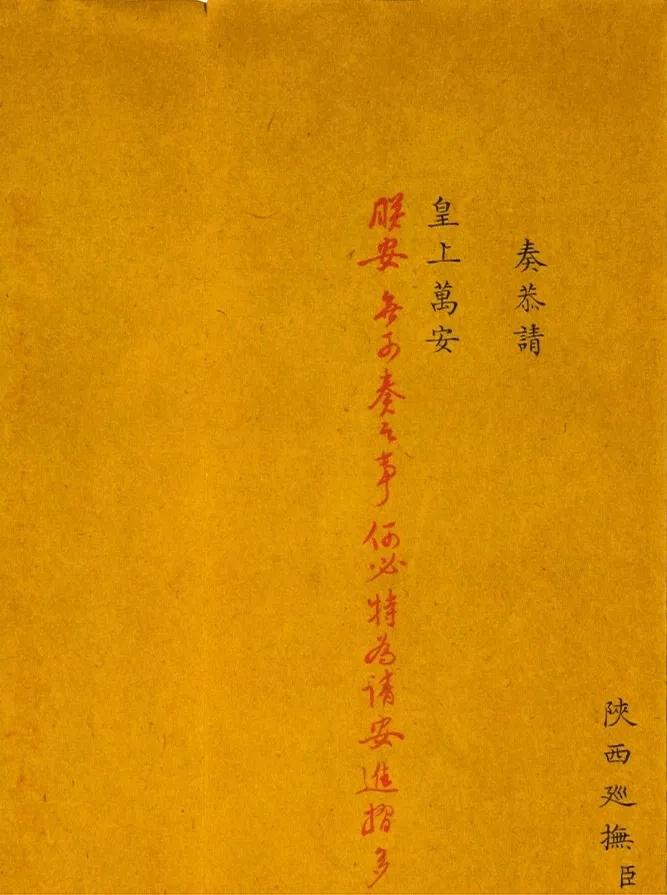 陝西巡撫臣
奏恭請
皇上萬安
朕安無可奏之事何必特為請安進摺多